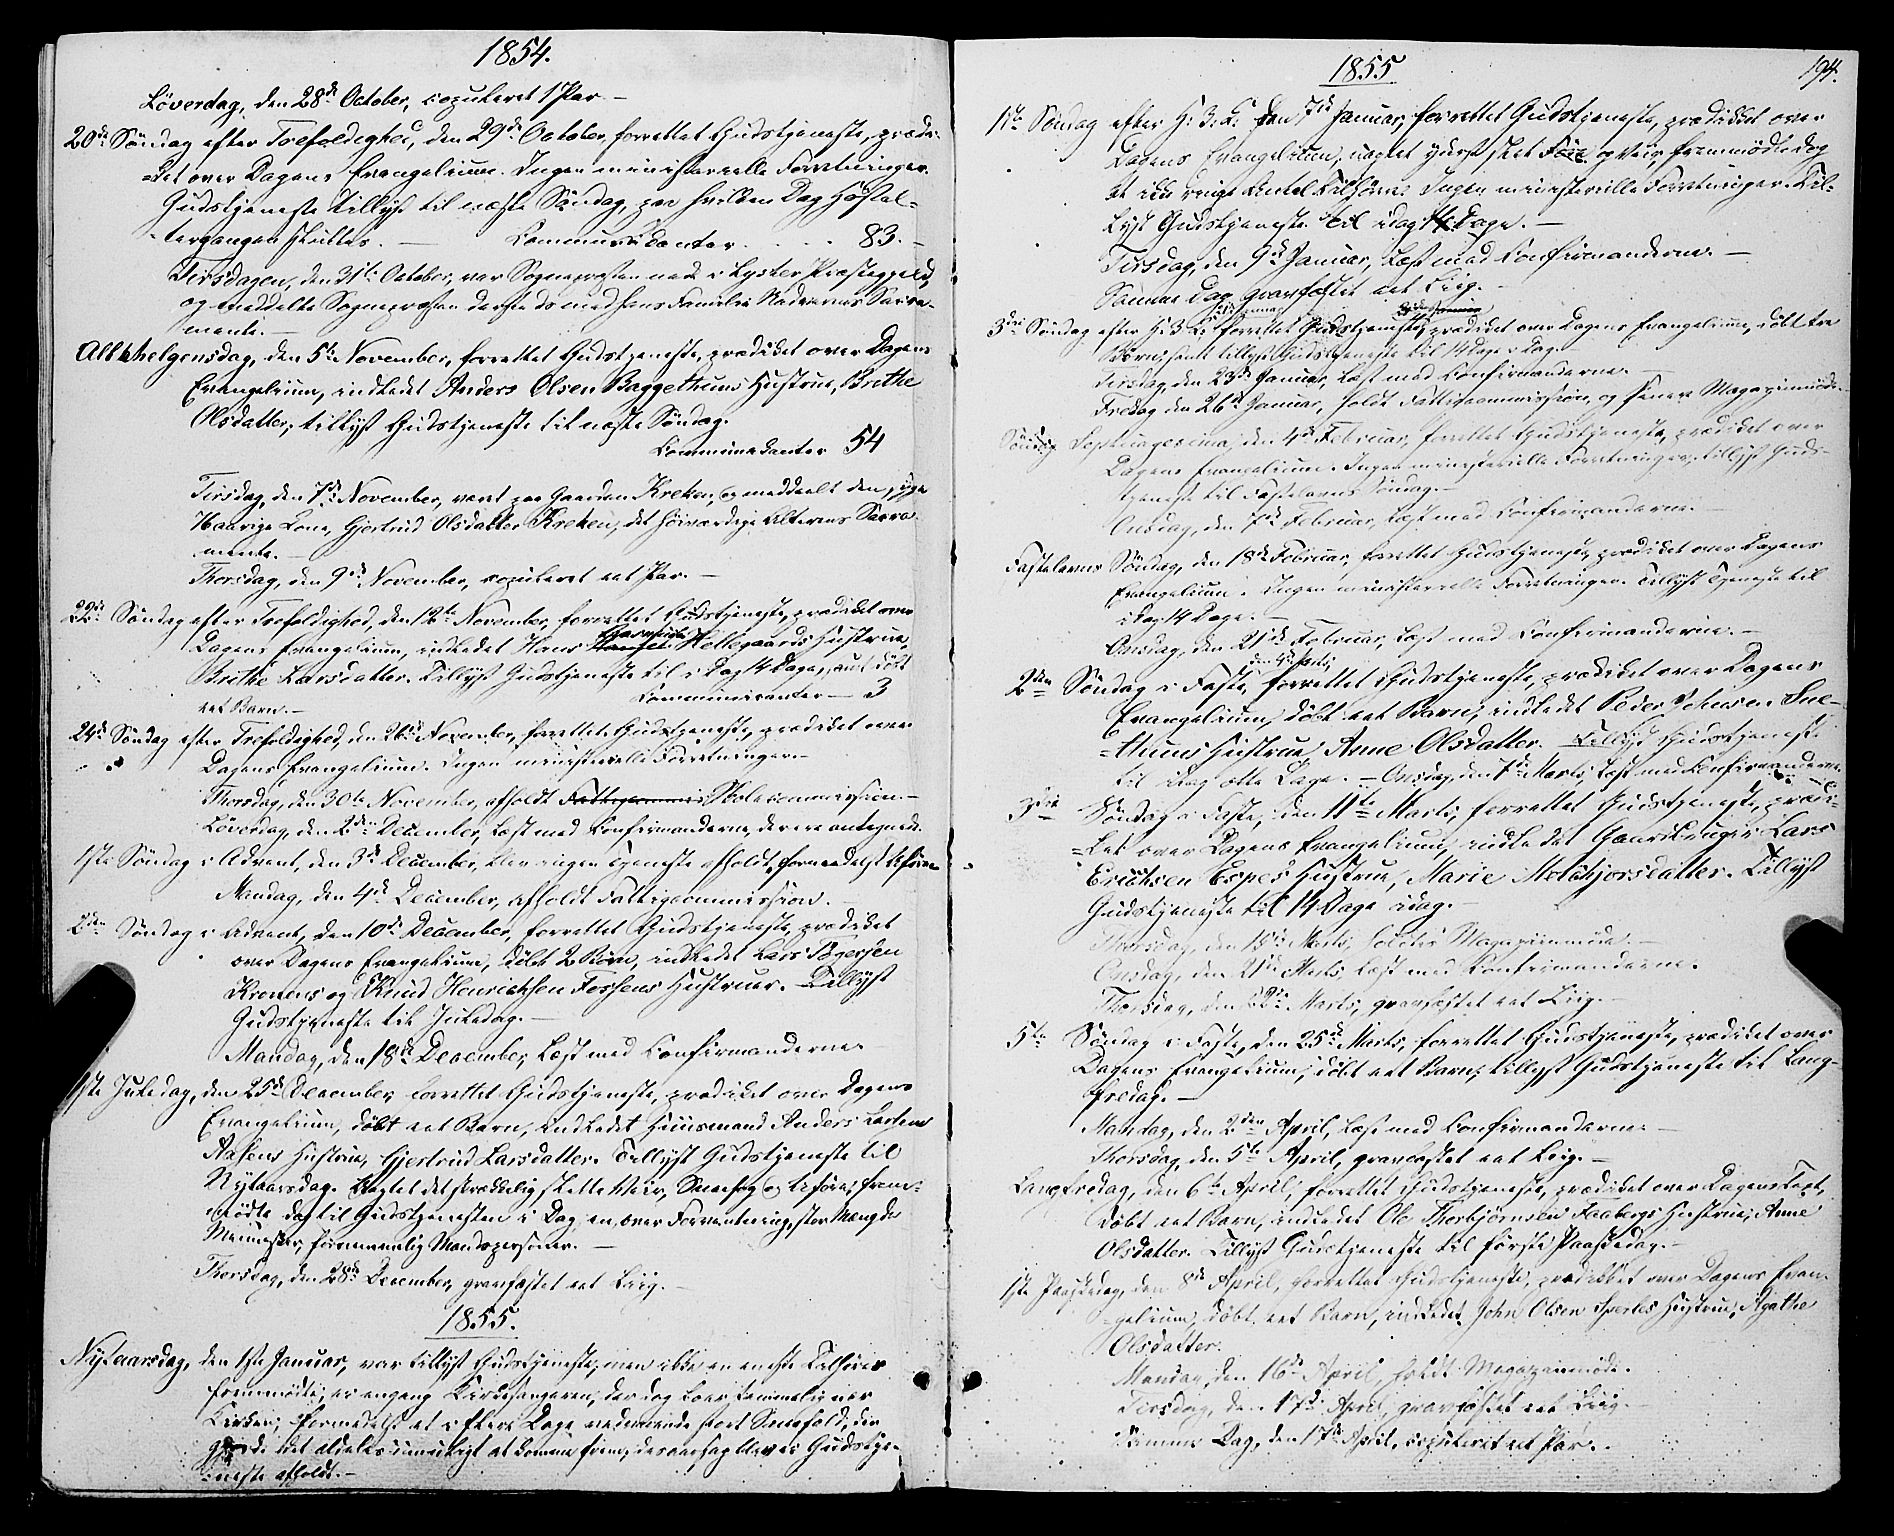 1854.
Løverdag, den 28de October, copuleret 1 Par. —
20de Søndag efter Trefoldighed, den 29de October, forrettet Gudstjeneste, prædi-
=ket over Dagens Evangelium. Ingen ministerielle Forretninger.
Gudstjeneste tillyst til næste Søndag, paa hvilken Dag Høstal-
=tergangen sluttes. — Communicanter . . . . 83. —
Tirsdagen, den 31te October, var Sognepræsten nede i Lyster Præstegjeld,
og meddelte Sognepræsten dersteds med hans Familie Nadverens Sacra-
mente. —
Allehelgensdag, den 5te November, forrettet Gudstjeneste, prædiket over Dagens
Evangelium, indledet Anders Olsen Baggethuns Hustrue, Brithe
Olsdatter, tillyst Gudstjeneste til næste Søndag.
Communicanter 54
Tirsdag, den 7de November, været paa Gaarden Kreken, og meddeelt den syge
Kone, Gjertrud Olsdatter Kreken, det høiværdige Alterens Sacra-
mente. —
Thorsdag, den 9de November, copuleret eet Par. —
22de Søndag efter Trefoldighed, den 12te November, forrettet Gudstjeneste, prædiket over
Dagens Evangelium, indledet Hans Hansen Hellegaards Hustrue,
Brithe Larsdatter. Tillyst Gudstjeneste til i Dag 14 Dage, samt døbt
eet Barn. — Communicanter — 3
24de Søndag efter Trefoldighed, den 26de November, forrettet Gudstjeneste, prædiket over
Dagens Evangelium. Ingen ministerielle Forretninger. —
Thorsdag, den 30te November, afholdt Fattigcommis Skolecommission. —
Løverdag, den 2den December, læst med Confirmanderne, der ere antegnede.
1ste Søndag i Advent, den 3de December, blev ingen Tjeneste afholdt, formedelst Uføre
Mandag, den 4de December, afholdt Fattigcommission. —
2den Søndag i Advent, den 10de December, forrettet Gudstjeneste, prædiket
over Dagens Evangelium, døbt 2 Børn, indledet Lars Pedersen
Kronens og Knud Henrichsen Fossens Hustruer. Tillyst
Gudstjeneste til Juledag. —
Mandag, den 18de December, læst med Confirmanderne.
1ste Juledag, den 25de December, forrettet Gudstjeneste, prædiket over Dagens
Evangelium, døbt eet Barn, indledet Huusmand Anders Larsens
Aasens Hustrue, Gjertrud Larsdatter. Tillyst Gudstjeneste til
Nytaarsdag. Uagtet det skrækkelig slette Veir, Sneefog og Uføre, frem-
mødte dog til Gudstjenesten i Dag en, over Forventning, stor Mængde
Mennesker, fornemmelig Mandspersoner. —
Thorsdag, den 28de December, gravfæstet eet Liig. —
1855.
Nytaarsdag, den 1ste Januar, var tillyst Gudstjeneste, men ikke en eneste Tilhører
fremmødte, ei engang Kirkesangeren, der dog boer temmelig nær
Kirken, formedelst et i flere Dage vedvarende stort Sneefald, der
gjorde det aldeles umueligt at komme frem, desaarsag blev ei Gudstje-
neste afholdt. —
1855
194.
1ste Søndag efter H. 3. K. den 7de Januar, forrettet Gudstjeneste, prædiket over
Dagens Evangelium, uagtet yderst slet Føre og Veir, fremmødte dog
et ikke ringe Antal Tilhørere. Ingen ministerielle Forretninger. Til-
lyst Gudstjeneste til idag 14 Dage. —
Tirsdag, den 9de Januar, læst med Confirmanderne. —
Samme Dag gravfæstet eet Liig. —
3die Søndag efter H. 3 K. forrettet Gudstjeneste, prædiket over Dagens Evangelium, døbt tre
Børn, samt tillyst Gudstjeneste til 14 Dage i Dag. —
Tirsdag, den 23de Januar, læst med Confirmanderne. —
Fredag den 26de Januar, holdt Fattigcommission, og senere Magazinmøde.
Søndag Septuagesima, den 4de Februar, forrettet Gudstjeneste, prædiket over
Dagens Evangelium. Ingen ministerielle Forretninger, tillyst Guds-
tjeneste til Fastelavns Søndag. —
Onsdag, den 7de Februar, læst med Confirmanderne. —
Fastelavns Søndag, den 18de Februar, forrettet Gudstjeneste, prædiket over Dagens
Evangelium. Ingen ministerielle Forretninger. Tillyst Tjeneste til
idag 14 Dage. —
Onsdag, den 21de Februar, læst med Confirmanderne. —
den 4de Marts
2den Søndag i Faste, forrettet Gudstjeneste, prædiket over Dagens
Evangelium, døbt eet Barn, indledet Peder Johnsen Sne-
=thuns Hustrue Anne Olsdatter. Tillyst Gudstjeneste
til idag otte Dage. — Onsdag, den 7de Marts, læst med Confirmanderne.
3die Søndag i Faste, den 11te Marts, forrettet Gudstjeneste, prædi-
=ket over Dagens Evangelium, indledet Gaardbruger Lars
Erichsen Espes Hustrue, Marie Melchjorsdatter. Tillyst
Gudstjeneste til 14 Dage idag. —
Thorsdag, den 15de Marts, holdtes Magazinmøde. —
Onsdag, den 21de Marts, læst med Confirmanderne.
Thorsdag, den 22de Marts, gravfæstet eet Liig. —
5te Søndag i Faste, den 25de Marts, forrettet Gudstjeneste, prædiket over
Dagens Evangelium, døbt eet Barn, tillyst Gudstjeneste til Lang-
fredag. —
Mandag, den 2den April, læst med Confirmanderne. —
Thorsdag, den 5te April, gravfæstet eet Liig. —
Langfredag, den 6te April, forrettet Gudstjeneste, prædiket over Dagens Text,
døbt eet Barn, indledet Ole Thorbjørnsen Faabergs Hustrue, Anne
Olsdatter. Tillyst Gudstjeneste til første Paaskedag. —
1ste Paaskedag, den 8de April, forrettet Gudstjeneste, prædiket over Dagens Evan-
gelium, døbt eet Barn, indledet John Olsen Sperles Hustrue, Agathe
Olsdatter.
Mandag, den 16de April, holdt Magazinmøde.
Tirsdag, den 17de April, gravfæstet eet Liig. —
Samme Dag, den 17de April, copuleret eet Par. —